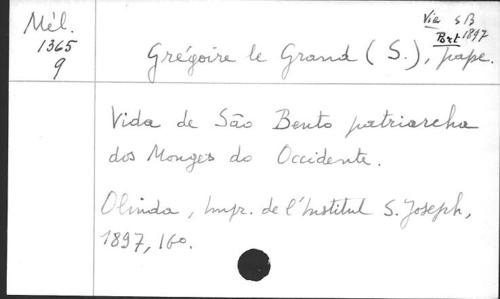 Mél.
1365
9
Via SB
Bxt 1897
Grégoire le Grand (S.), pape.
Vida de São Bento patriarcha
dos Monges do Occidente.
Olinda, Impr. de l'Institut S. Joseph,
1897, 16o.